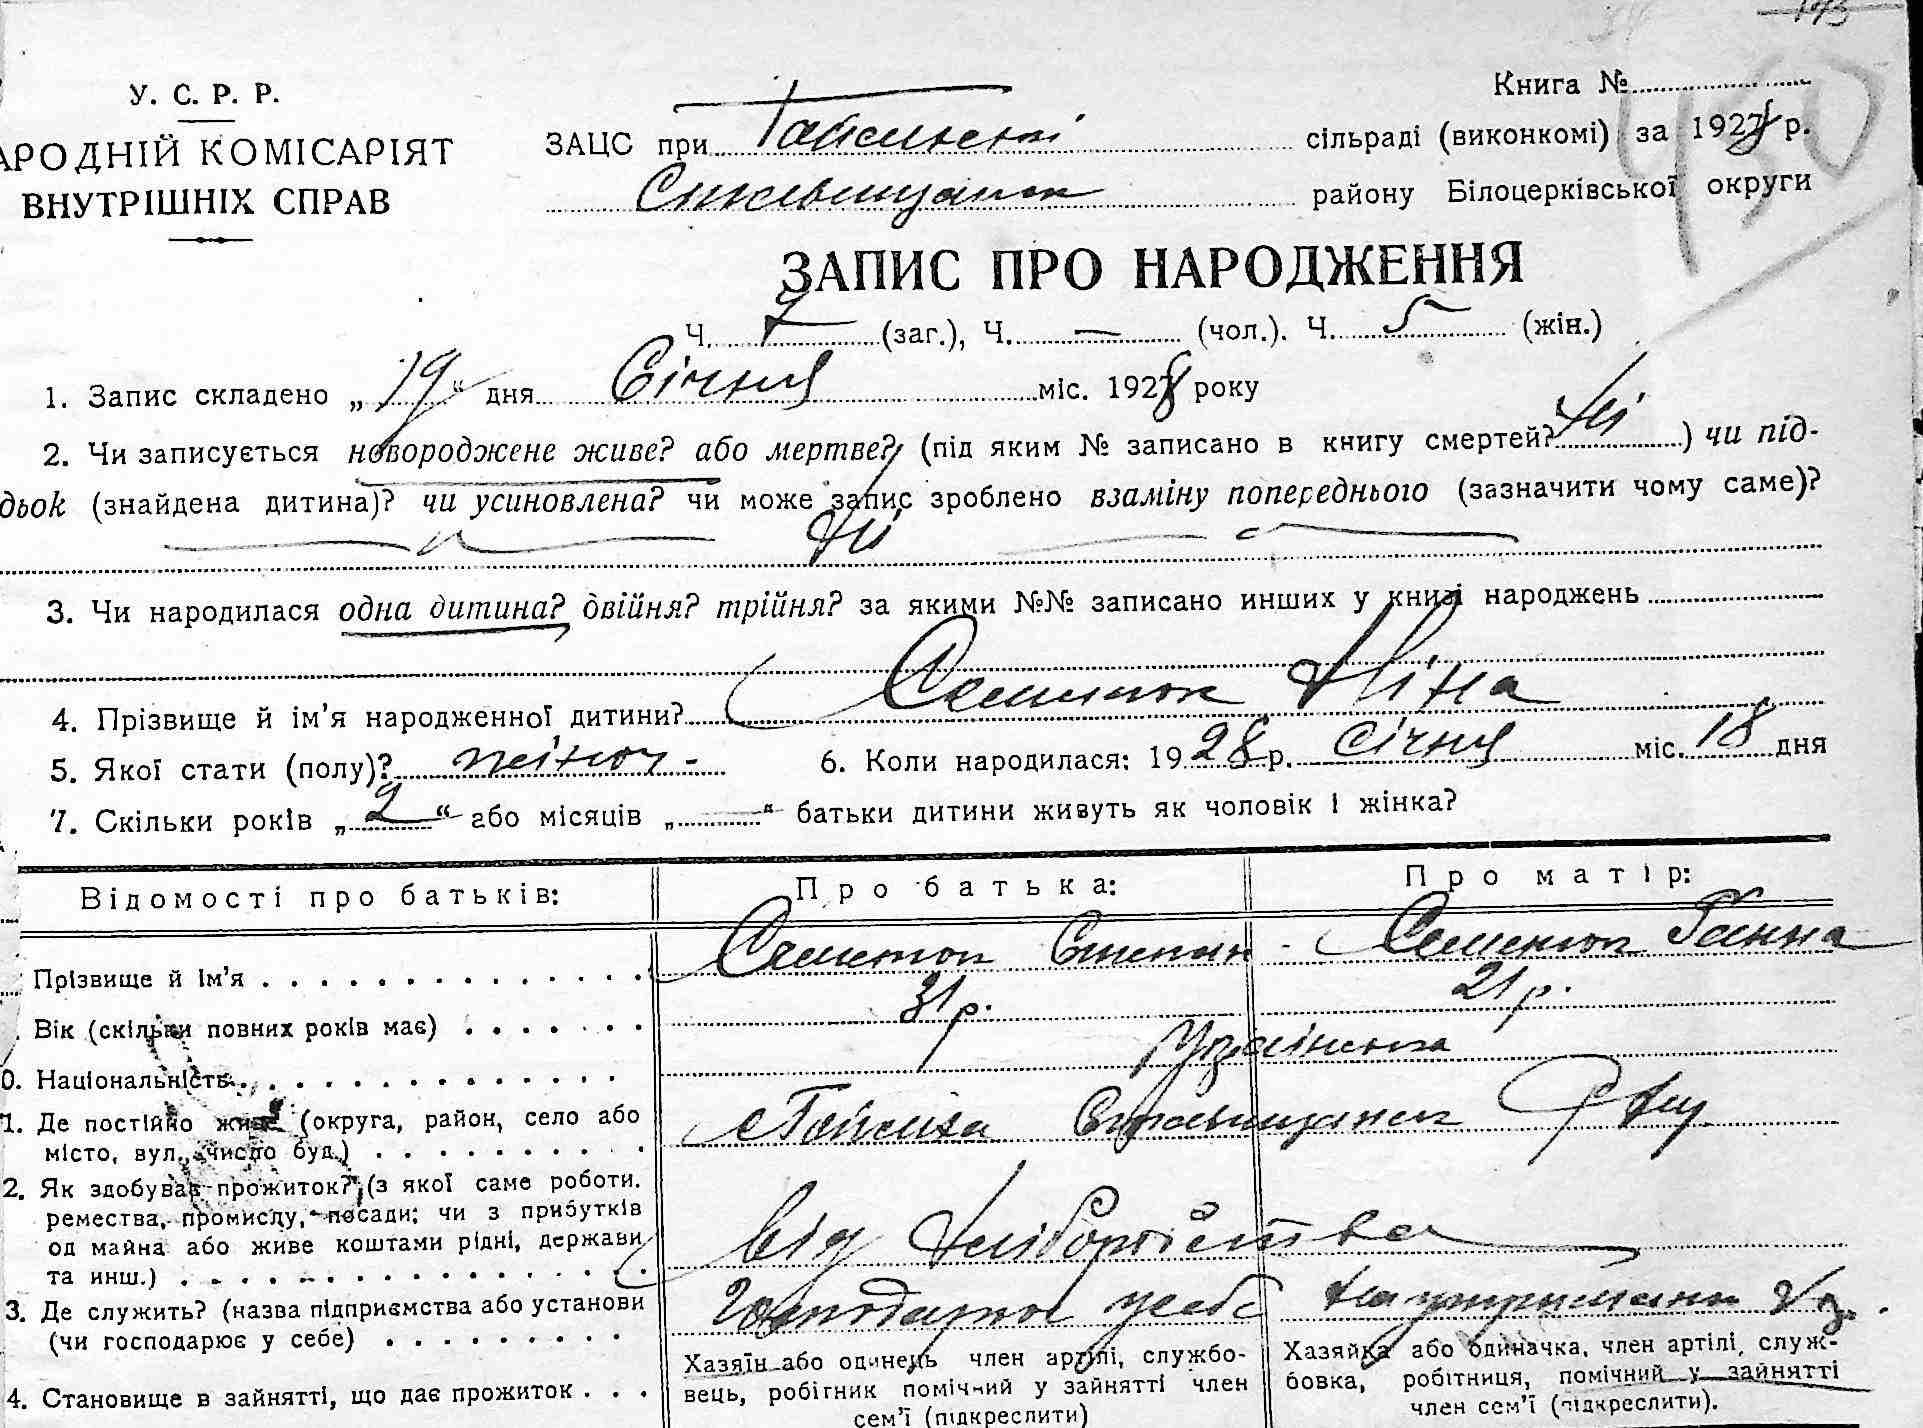 173
430
У. С. Р. Р.
АРОДНІЙ КОМІСАРІЯТ
ВНУТРІШНІХ СПРАВ
Книга №
ЗАЦС при Гайсинській сільраді (виконкомі) за 1928 р.
району Білоцерківської округи
ЗАПИС ПРО НАРОДЖЕННЯ
Ч. 7 (заг.), Ч. — (чол.). Ч. 5 (жін.)
1. Запис складено „19“ дня Січня міс. 1928 року
2. Чи записується новороджене живе? або мертве? (під яким № записано в книгу смертей? Ні) чи під-
дьок (знайдена дитина)? чи усиновлена? чи може запис зроблено взаміну попереднього (зазначити чому саме)?
Ні
3. Чи народилася одна дитина? двійня? трійня? за якими №№ записано инших у книзі народжень
4. Прізвище й ім’я народженної дитини? Семенюк Ніна
5. Якої стати (полу)? жіноч- 6. Коли народилася: 1928 р. Січня міс. 18 дня
7. Скільки років „2“ або місяців „ “ батьки дитини живуть як чоловік і жінка?
Відомості про батьків: Про батька: Про матір:
Прізвище й ім’я Семенюк Степан - Семенюк Ганна
Вік (скільки повних років має) 31 р. 21 р.
0. Національність Українська
1. Де постійно живе (округа, район, село або
місто, вул., число буд.)
2. Як здобуває прожиток? (з якої саме роботи.
ремества, промислу, посади; чи з прибутків
од майна або живе коштами рідні, держави
та инш.) Від хліборобства
3. Де служить? (назва підприємства або установи
(чи господарює у себе) Господарює у себе На утриманні
4. Становище в зайнятті, що дає прожиток
Хазяїн або одинець член артілі, службо-
вець, робітник помічний у зайнятті член
сем’ї (підкреслити)
Хазяйка або одиначка, член артілі, служ-
бовка, робітниця, помічний у зайнятті
член сем’ї (підкреслити).